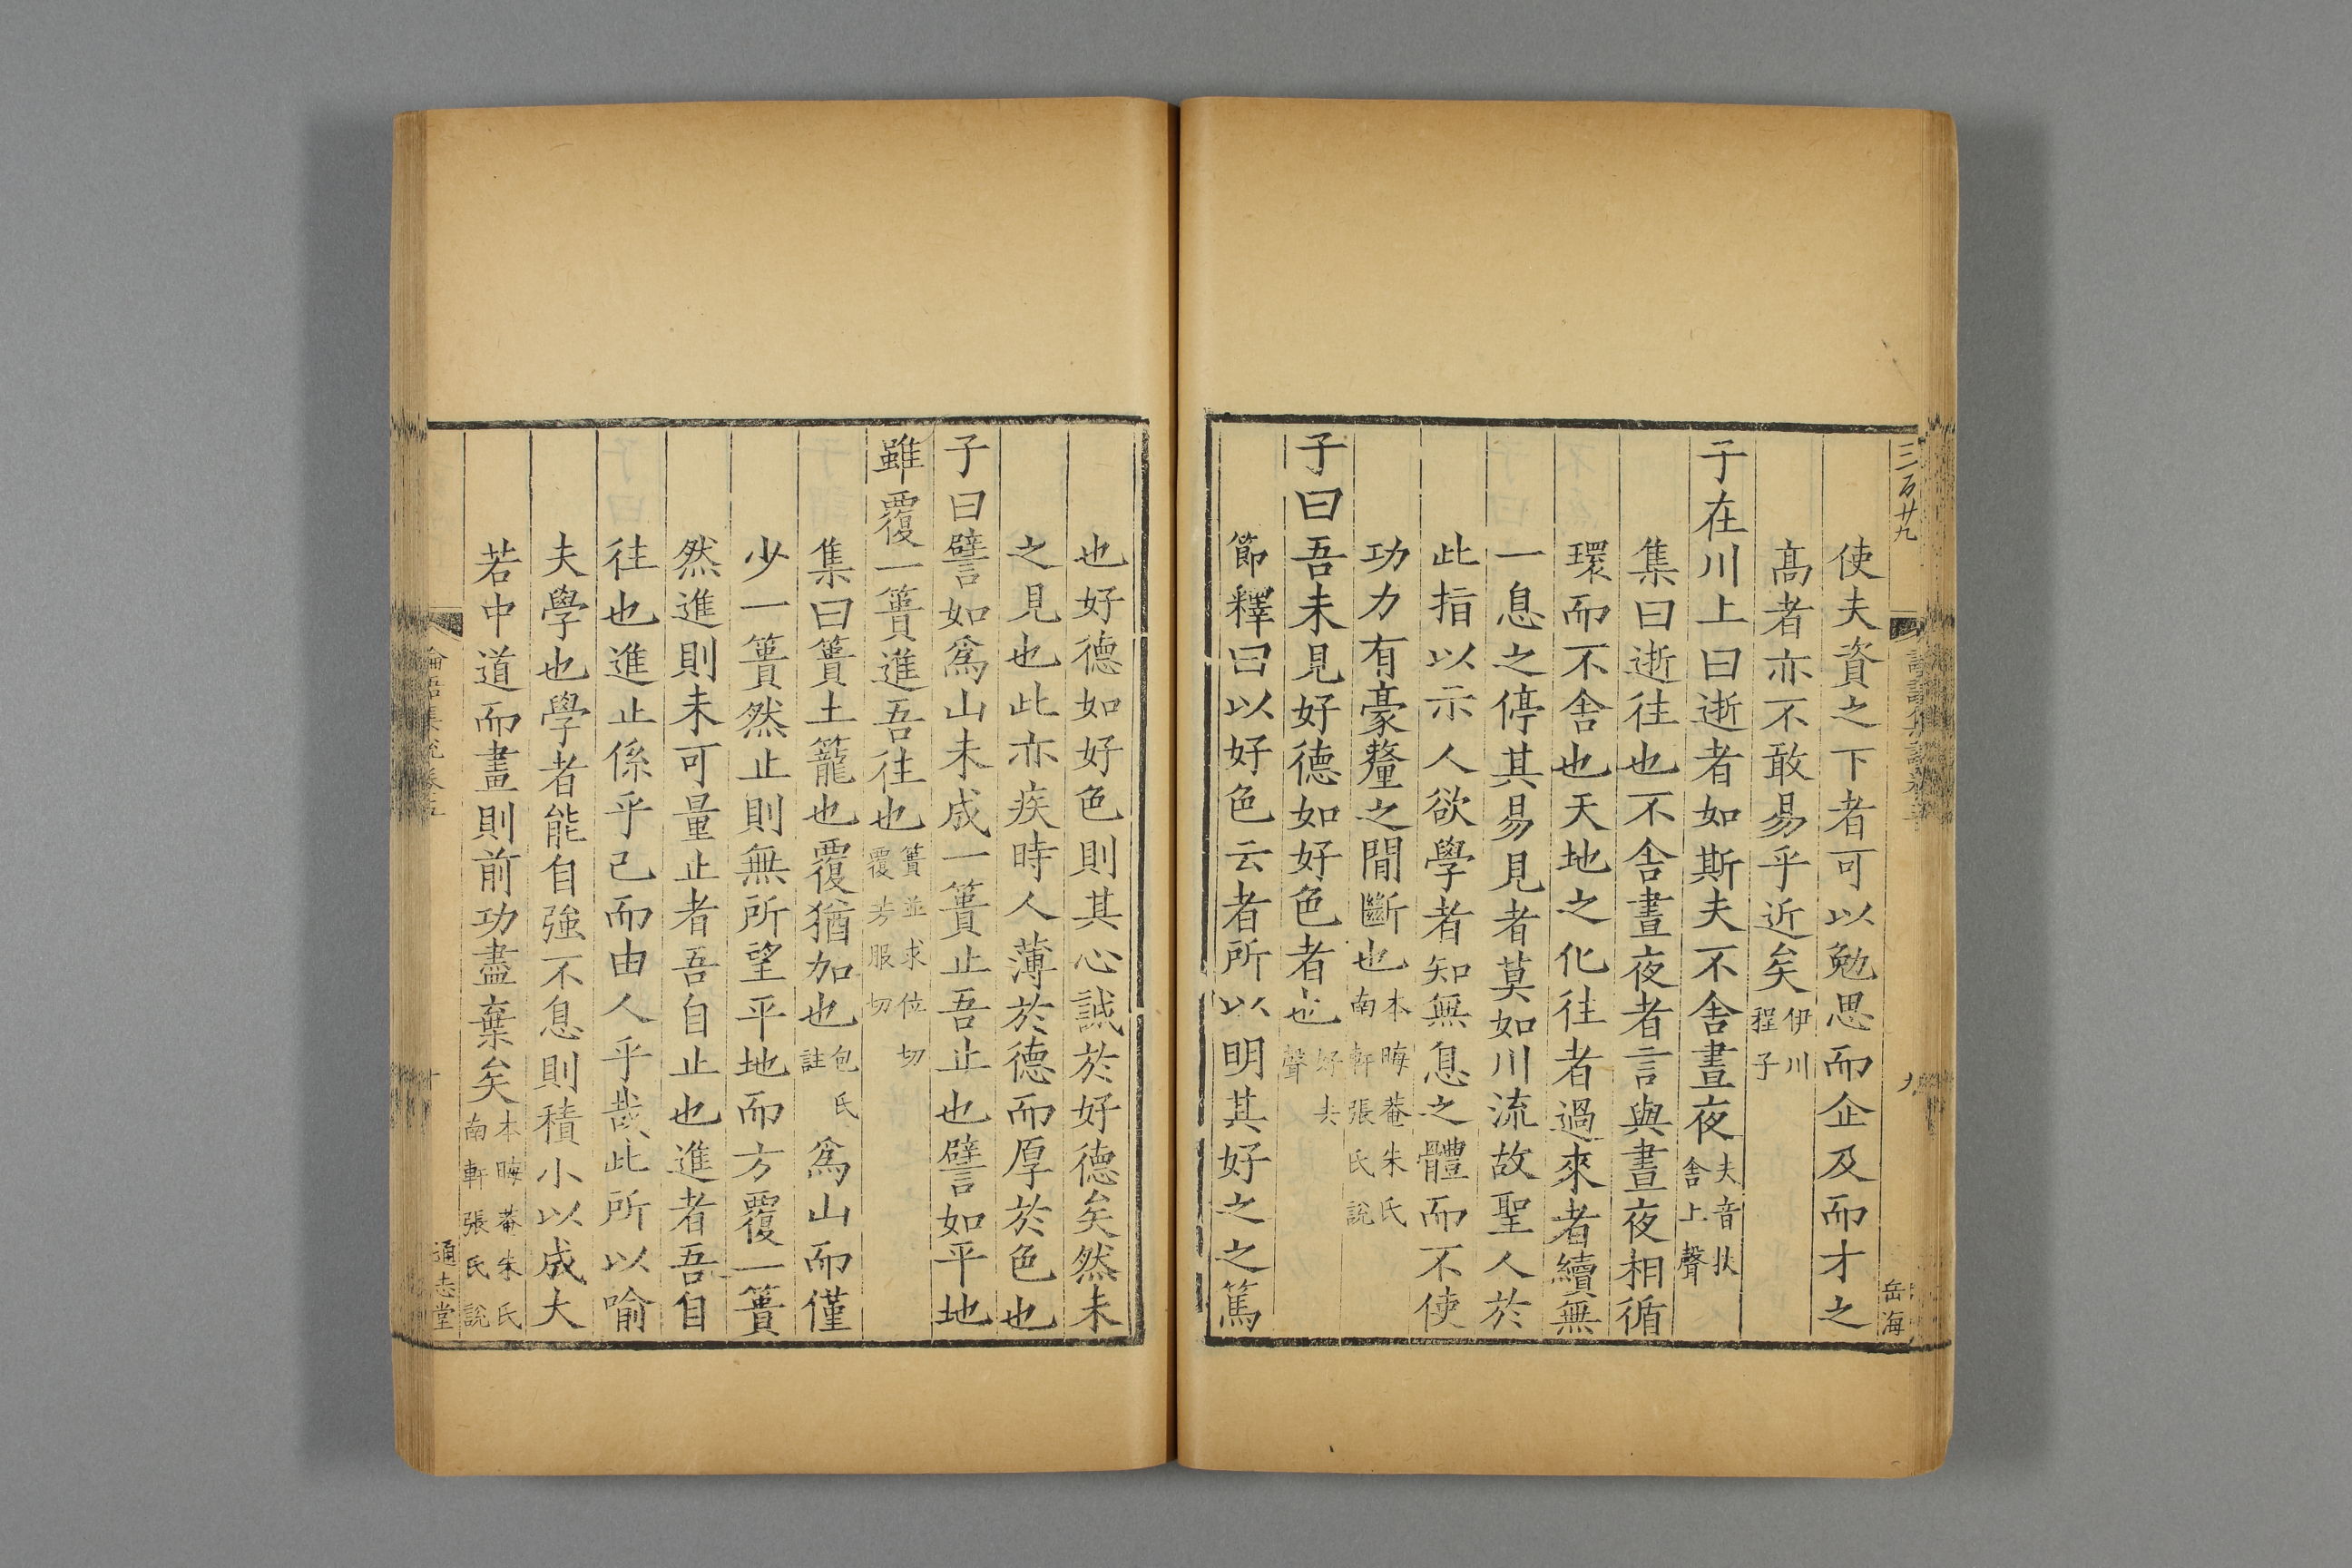 三百廿九
九
岳海
使夫資之下者可以勉思而企及而才之
髙者亦不敢易乎近矣伊川程子
子在川上曰逝者如斯夫不舍晝夜夫音扶舍上聲
集曰逝往也不舍晝夜者言與晝夜相循
環而不舍也天地之化往者過來者續無
一息之停其易見者莫如川流故聖人於
此指以示人欲學者知無息之體而不使
功力有豪釐之閒斷也本晦菴朱氏南軒張氏說
子曰吾未見好德如好色者也好去聲
節釋曰以好色云者所以明其好之之篤
也好德如好色則其心誠於好德矣然未
之見也此亦疾時人薄於德而厚於色也
子曰譬如爲山未成一簣止吾止也譬如平地
雖覆一簣進吾往也簣並求位切覆芳服切
集曰簣土籠也覆猶加也包氏註爲山而僅
少一簣然止則無所望平地而方覆一簣
然進則未可量止者吾自止也進者吾自
往也進止係乎己而由人乎哉此所以喻
夫學也學者能自強不息則積小以成大
若中道而畫則前功盡棄矣本晦菴朱氏南軒張氏說
論語集說卷五
十
通志堂